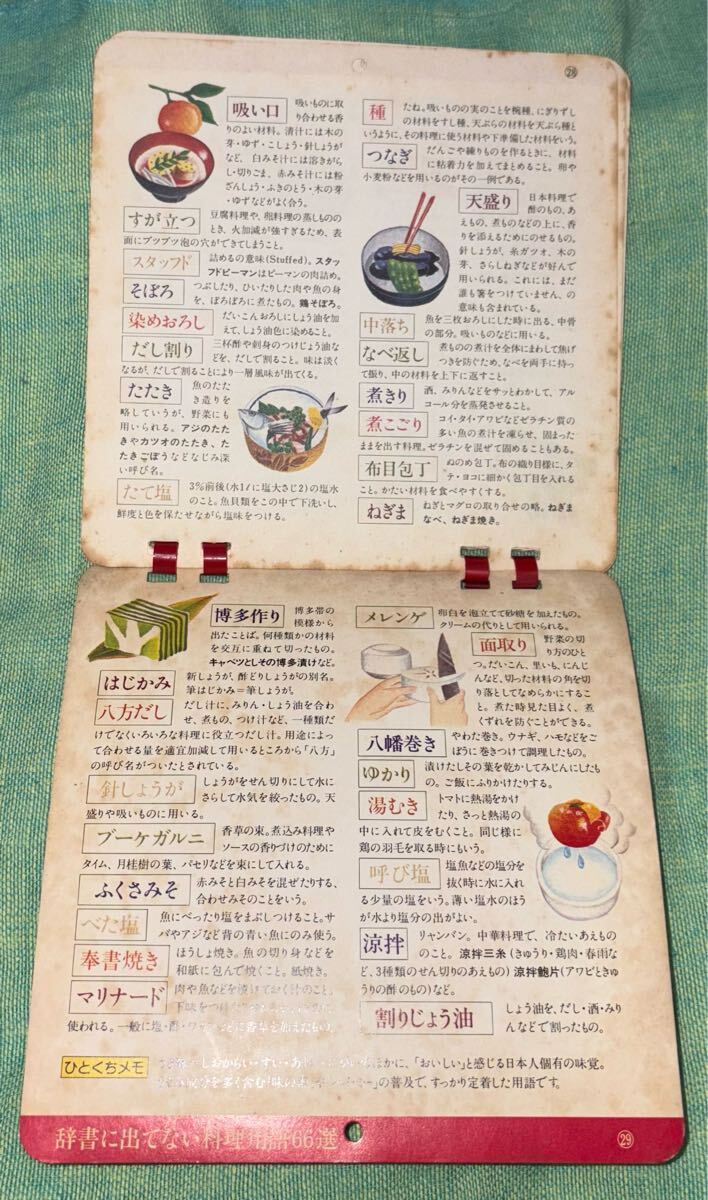 ㉘
吸い口
吸いものに取
り合わせる香
りのよい材料。清汁には木の
芽・ゆず・こしょう・針しょうが
など、白みそ汁には溶きがら
し・切りごま、赤みそ汁には粉
ざんしょう・ふきのとう・木の芽
・ゆずなどがよく合う。
すが立つ
豆腐料理や、卵料理の蒸しものの
とき、火加減が強すぎるため、表
面にブツブツ泡の穴ができてしまうこと。
スタッフド
詰めるの意味(Stuffed)。スタッ
フドピーマンはピーマンの肉詰め。
そぼろ
つぶしたり、ひいたりした肉や魚の身
を、ぽろぽろに煮たもの。鶏そぼろ。
染めおろし
だいこんおろしにしょう油を加
えて、しょう油色に染めること。
だし割り
三杯酢や刺身のつけじょう油な
どを、だしで割ること。味は淡く
なるが、だしで割ることにより一層風味が出てくる。
たたき
魚のたた
き造りを
略していうが、野菜にも
用いられる。アジのたた
きやカツオのたたき、た
たきごぼうなどなじみ深
い呼び名。
たて塩
3%前後(水1ℓに塩大さじ2)の塩水
のこと。魚貝類をこの中で下洗いし、
鮮度と色を保たせながら塩味をつける。
種
たね。吸いものの実のことを椀種、にぎりずし
の材料をすし種、天ぷらの材料を天ぷら種と
いうように、その料理に使う材料や下準備した材料をいう。
つなぎ
だんごや練りものを作るときに、材料
に粘着力を加えてまとめること。卵や
小麦粉などを用いるのがその一例である。
天盛り
日本料理で
酢のもの、あ
えもの、煮ものなどの上に、香
りを添えるためにのせるもの。
針しょうが、糸ガツオ、木の
芽、さらしねぎなどが好んで
用いられる。これには、まだ
誰も箸をつけていません、の
意味も含まれている。
中落ち
魚を三枚おろしにした時に出る、中骨
の部分。吸いものなどに用いる。
なべ返し
煮ものの煮汁を全体にまわして焦げ
つきを防ぐため、なべを両手に持っ
て振り、中の材料を上下に返すこと。
煮きり
酒、みりんなどをサッとわかして、アル
コール分を蒸発させること。
煮こごり
コイ・タイ・アワビなどゼラチン質の
多い魚の煮汁を凍らせ、固まった
ままを出す料理。ゼラチンを混ぜて固めることもある。
布目包丁
ぬのめ包丁。布の織り目様に、タ
テ・ヨコに細かく包丁目を入れる
こと。かたい材料を食べやすくする。
ねぎま
ねぎとマグロの取り合せの略。ねぎま
なべ、ねぎま焼き。
博多作り
博多帯の
模様から
出たことば。何種類かの材料
を交互に重ねて切ったもの。
キャベツとしその博多漬けなど。
はじかみ
新しょうが、酢どりしょうがの別名。
筆はじかみ=筆しょうが。
八方だし
だし汁に、みりん・しょう油を合わ
せ、煮もの、つけ汁など、一種類だ
けでなくいろいろな料理に役立つだし汁。用途によ
って合わせる量を適宜加減して用いるところから「八方」
の呼び名がついたとされている。
針しょうが
しょうがをせん切りにして水に
さらして水気を絞ったもの。天
盛りや吸いものに用いる。
ブーケガルニ
香草の束。煮込み料理や
ソースの香りづけのために
タイム、月桂樹の葉、パセリなどを束にして入れる。
ふくさみそ
赤みそと白みそを混ぜたりする、
合わせみそのことをいう。
べた塩
魚にべったり塩をまぶしつけること。サ
バやアジなど背の青い魚にのみ使う。
奉書焼き
ほうしょ焼き。魚の切り身などを
和紙に包んで焼くこと。紙焼き。
マリナード
肉や魚などを漬けておく汁のこと。
下味をつけ
使われる。一般に塩・酢・ワ などに香草を加えたもの。
メレンゲ
卵白を泡立てて砂糖を加えたもの。
クリームの代りとして用いられる。
面取り
野菜の切
り方のひと
つ。だいこん、里いも、にんじ
んなど、切った材料の角を切
り落としてなめらかにするこ
と。煮た時見た目よく、煮
くずれを防ぐことができる。
八幡巻き
やわた巻き。ウナギ、ハモなどをご
ぼうに巻きつけて調理したもの。
ゆかり
漬けたしその葉を乾かしてみじんにしたも
の。ご飯にふりかけたりする。
湯むき
トマトに熱湯をかけ
たり、さっと熱湯の
中に入れて皮をむくこと。同じ様に
鶏の羽毛を取る時にもいう。
呼び塩
塩魚などの塩分を
抜く時に水に入れ
る少量の塩をいう。薄い塩水のほう
が水より塩分の出がよい。
涼拌
リャンバン。中華料理で、冷たいあえもの
のこと。涼拌三糸(きゅうり・鶏肉・春雨な
ど、3種類のせん切りのあえもの)涼拌鮑片(アワビときゅ
うりの酢のもの)など。
割りじょう油
しょう油を、だし・酒・みり
んなどで割ったもの。
ひとくちメモ
しおからい・すい・あ ほかに、「おいしい」と感じる日本人個有の味覚。
成分を多く含む「味の 」の普及で、すっかり定着した用語です。
辞書に出てない料理用語66選
㉙